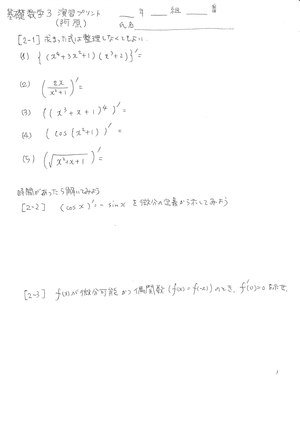 基礎数学3 演習プリント ＿年 ＿組 ＿番
(阿原) 氏名
[2-1] 求まった式は整理しなくてもよい.
(1) {(x⁴+3x²+1)(x³+2)}'=
(2) (2x/(x²+1))'=
(3) ((x³+x+1)⁴)'=
(4) {cos(x²+1)}'=
(5) (√(x²+x+1))'=
時間があったら解いてみよう
[2-2] (cos x)'=-sin x を微分の定義から示してみよう
[2-3] f(x)が微分可能かつ偶関数(f(x)=f(-x))のとき, f'(0)=0 を示せ.